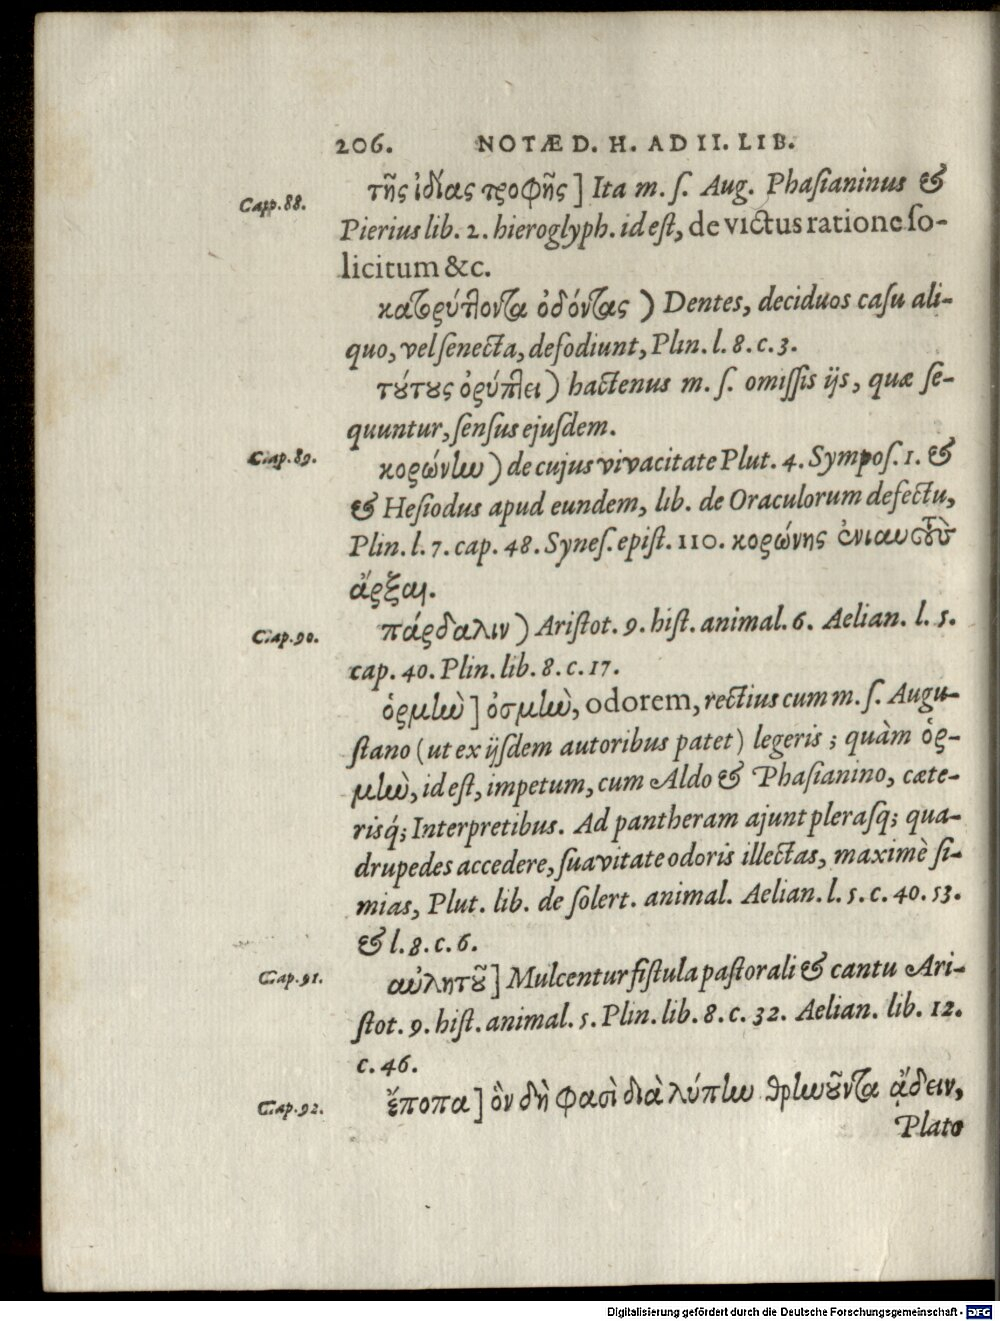 206. NOTÆ D. H. AD II. LIB.
Cap. 88.
τῆς ἰδίας τροφῆς] Ita m. ſ. Aug. Phaſianinus &
Pierius lib. 2. hieroglyph. id eſt, de victus ratione ſo-
licitum &c.
κατορύττοντα ὀδόντας ) Dentes, deciduos caſu ali-
quo, vel ſenecta, defodiunt, Plin. l. 8. c. 3.
τούτους ὀρύττει ) hactenus m. ſ. omiſſis ijs, quæ ſe-
quuntur, ſenſus ejuſdem.
Cap. 89.
κορώνην ) de cujus vivacitate Plut. 4. Sympoſ. 1. &
& Heſiodus apud eundem, lib. de Oraculorum defectu,
Plin. l. 7. cap. 48. Syneſ. epiſt. 110. κορώνης ἐνιαυτοὺς
ἄρξαι.
Cap. 90.
πάρδαλιν ) Ariſtot. 9. hiſt. animal. 6. Aelian. l. 5.
cap. 40. Plin. lib. 8. c. 17.
ὁρμὴν ] ὀσμὴν, odorem, rectius cum m. ſ. Augu-
ſtano (ut ex ijſdem autoribus patet) legeris ; quàm ὁρ-
μὴν, id eſt, impetum, cum Aldo & Phaſianino, cæte-
risq́; Interpretibus. Ad pantheram ajunt pleraſq; qua-
drupedes accedere, ſuavitate odoris illectas, maximè ſi-
mias, Plut. lib. de ſolert. animal. Aelian. l. 5. c. 40. 53.
& l. 8. c. 6.
Cap. 91.
αὐλητοῦ ] Mulcentur fiſtula paſtorali & cantu Ari-
ſtot. 9. hiſt. animal. 5. Plin. lib. 8. c. 32. Aelian. lib. 12.
c. 46.
Cap. 92.
ἔποπα ] ὃν δὴ φασὶ διὰ λύπην θρηνοῦντα ᾄδειν,
Plato
Digitalisierung gefördert durch die Deutsche Forschungsgemeinschaft - DFG